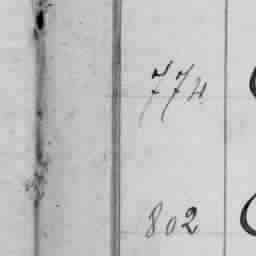 774
802